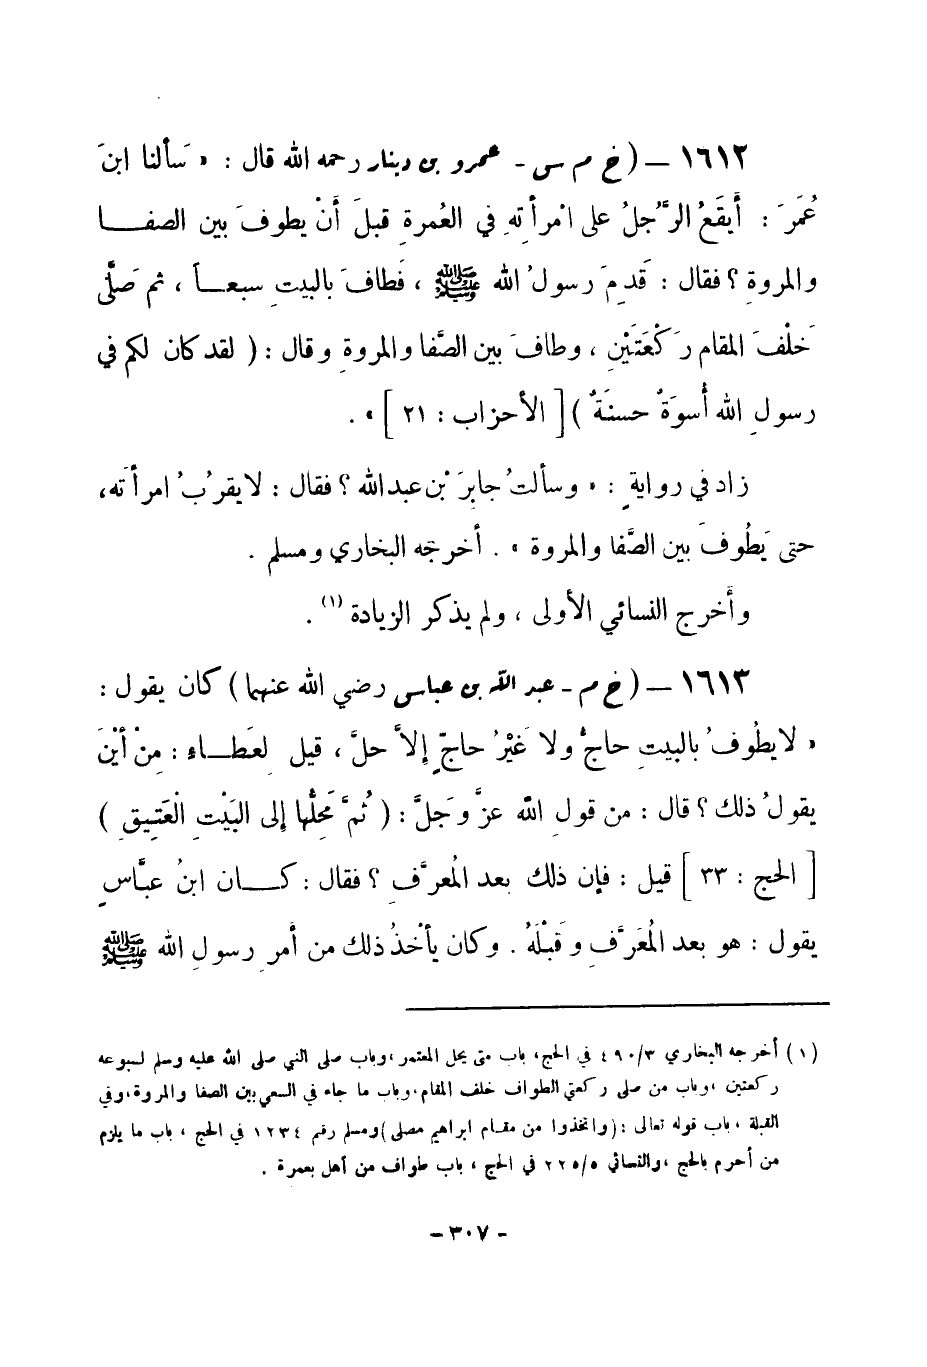 ١٦١٢ – (خ م س - عمرو بن دينار رحمه الله قال : « سَألنا ابنَ
عُمَرَ : أيَقَعُ الرَّجلُ على امْرأتهِ في العُمرةِ قبلَ أنْ يطوفَ بين الصفا
والمروةِ ؟ فقال : قَدمَ رسولُ الله ﷺ ، فَطافَ بالبيتِ سبعاً ، ثم صَلَّى
خَلْفَ المقام ركْعَتَيْنِ ، وطافَ بين الصَّفا والمروةِ وقال : ( لقد كان لكم في
رسولِ الله أُسوَةٌ حسنَةٌ ) [ الأحزاب : ٢١ ] » .
زاد في روايةٍ : « وسألتُ جابرَ بْنِ عبدالله ؟ فقال : لا يقرُبُ امرأتَه،
حتى يَطُوفَ بين الصَّفا والمروة » . أخرجَه البخاري ومسلم .
وأخرج النسائي الأولى ، ولم يذكر الزيادة (١) .
١٦١٣ – ( خ م - عبد الله بن عباس رضي الله عنهما ) كان يقول :
« لا يطُوفُ بالبيتِ حاجٌّ ولا غَيْرُ حاجٍّ إلاَّ حلَّ ، قيل لعَطاء : مِنْ أيْنَ
يقولُ ذلك ؟ قال : من قولِ الله عزَّ وَجَلَّ : ( ثُمَّ مَحِلُّها إلى البَيْتِ الْعَتِيقِ )
[ الحج : ٣٣ ] قيل : فإن ذلك بعد المُعرَّفِ ؟ فقال : كان ابنُ عبَّاسٍ
يقول : هو بعد المُعَرَّفِ وقَبْلَهُ . وكان يأْخذُ ذلك من أمرِ رسولِ الله ﷺ
(١) أخرجه البخاري ٤٩٠/٣ في الحج، باب متى يحل المعتمر ،وباب صلى النبي صلى الله عليه وسلم لسبوعه
ركعتين ،وباب من صلى ركعتي الطواف خلف المقام،وباب ما جاء في السعي بين الصفا والمروة،وفي
القبلة ، باب قوله تعالى : (واتخذوا من مقام ابراهيم مصلى )ومسلم رقم ١٢٣٤ في الحج ، باب ما يلزم
من أحرم بالحج ،والنسائي ٢٢٥/٥ في الحج ، باب طواف من أهل بعمرة .
- ٣٠٧ -